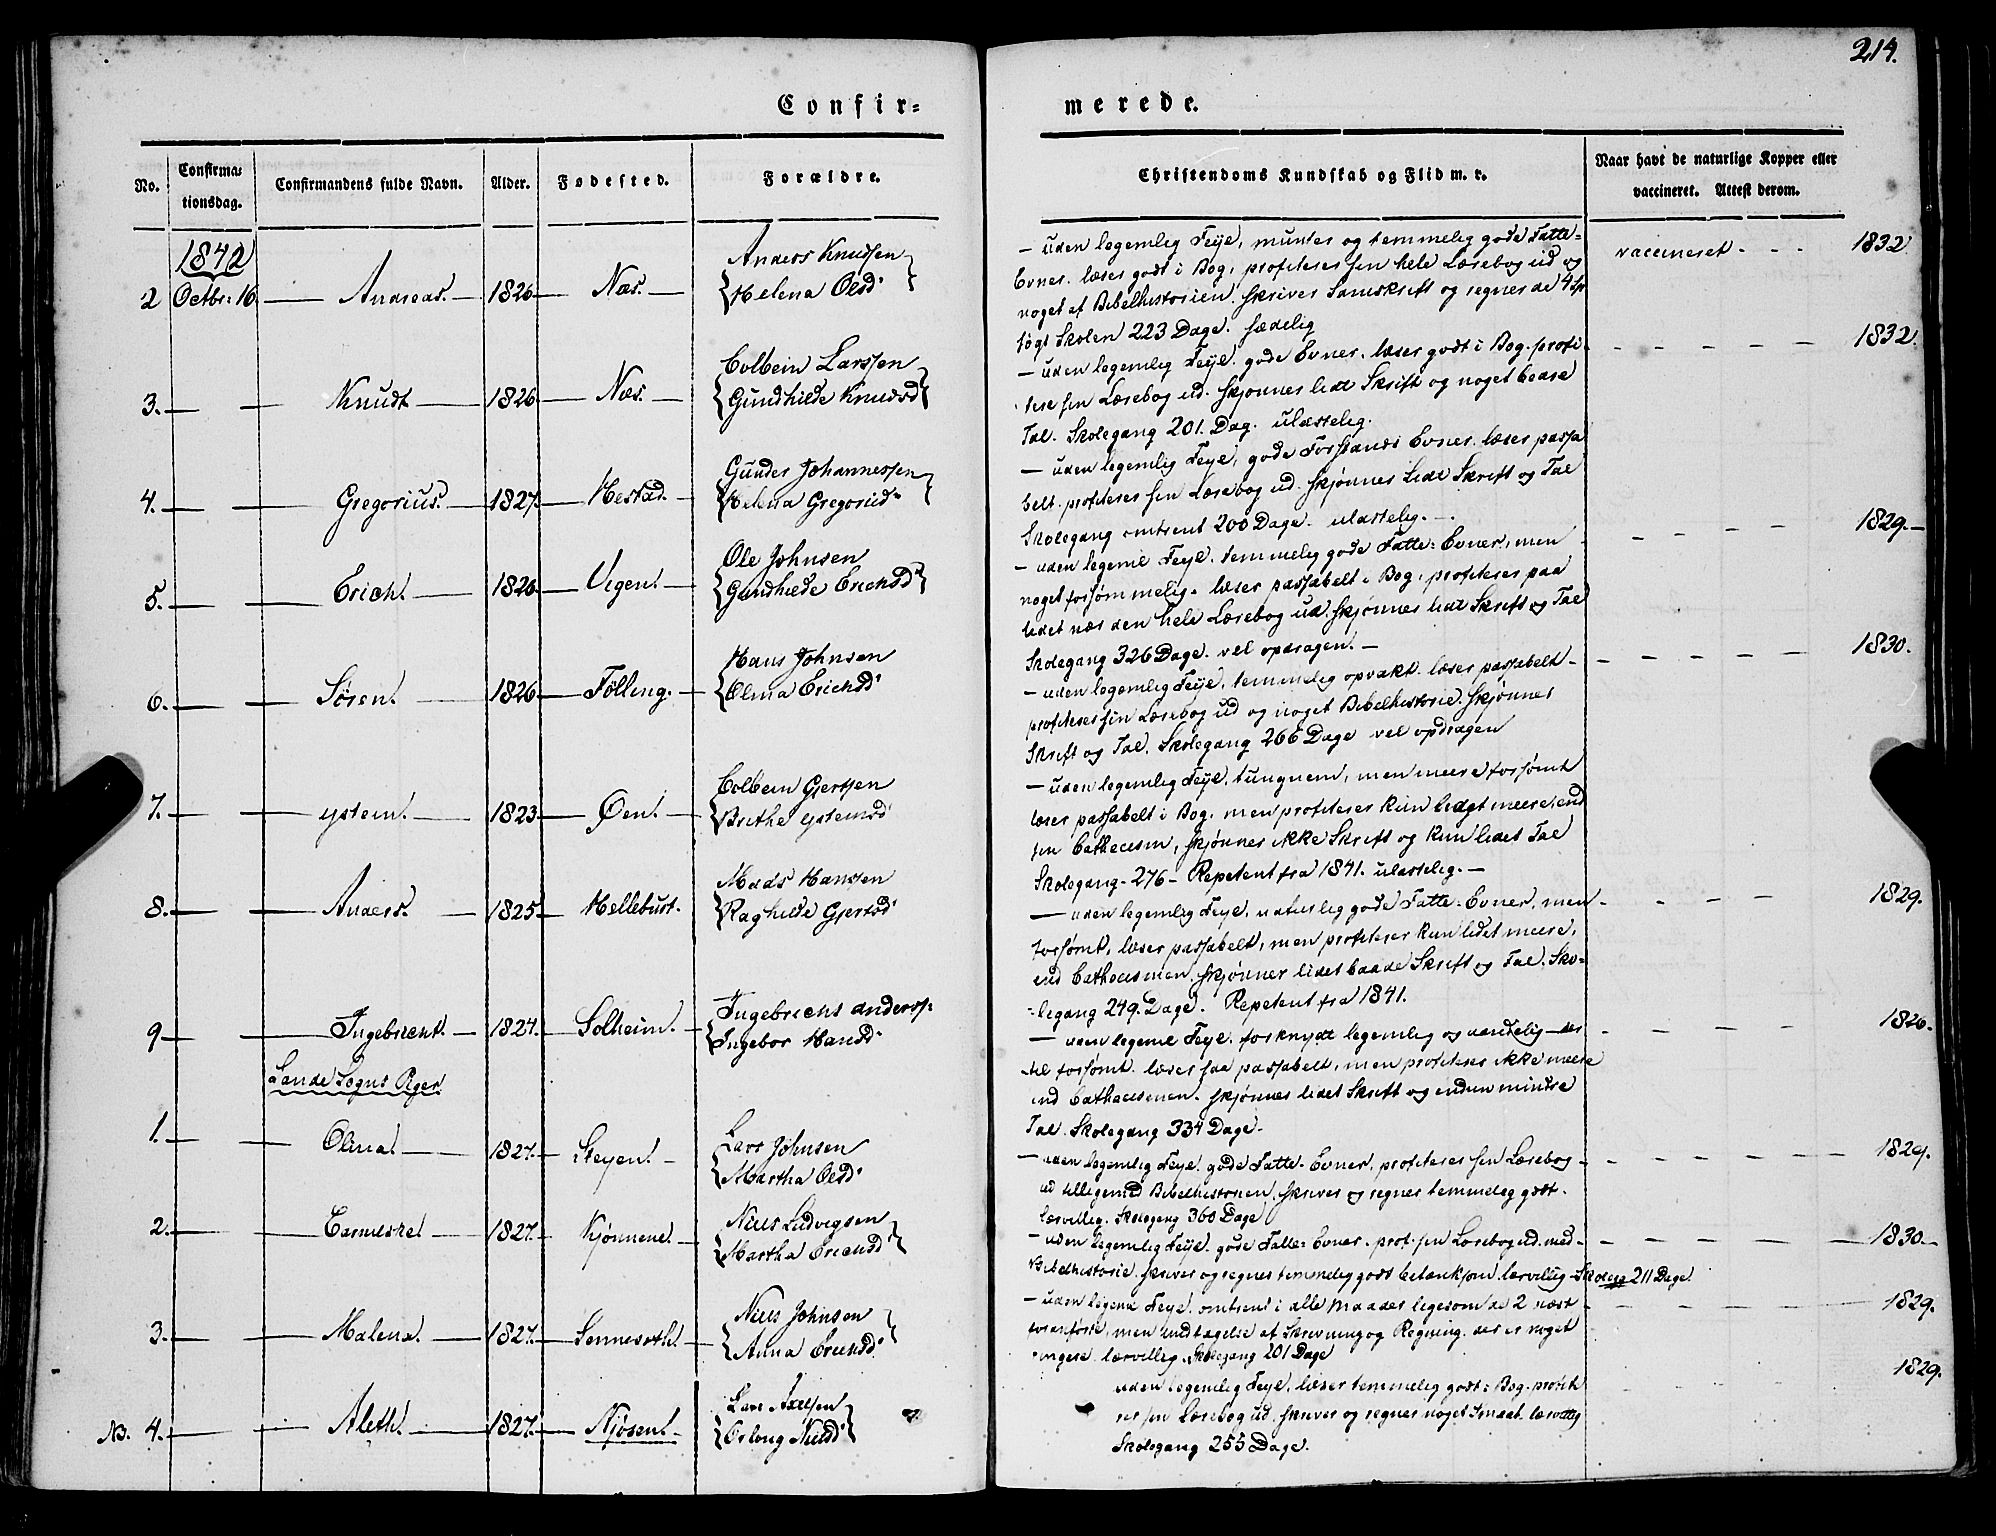 214.
Confir=
merede.
No.
Confirma=
tionsdag.
Confirmandens fulde Navn.
Alder.
Fødested.
Forældre.
Christendoms Kundskab og Flid m. v.
Naar havt de naturlige Kopper eller
vaccineret. Attest derom.
1842
2 Octbr. 16 — Andreas. — 1826 — Næs. — Anders Knudsen
Helena Olsd
— uden legemlig Feyl, munter og temmelig gode Fatte=
Evner. læser godt i Bog, profiterer sin hele Lærebog ud og
noget af Bibelhistorien. skriver Samskrift og regner de 4 Sp
søgt Skolen 223 Dage. sædelig
vaccineret - - - 1832
3. — — Knudt — 1826 — Næs. — Colbein Larssen
Gundhilde Knudsd
— uden legemlig Feyl. gode Evner. læser godt i Bog. profi=
terer sin Lærebog ud. skjønner lidt Skrift og noget bedre
Tal. Skolegang 201. Dag. ulastelig.
1832.
4. — — Gregorius. — 1827. — Hestad. — Gunder Johannessen
Helena Gregoriid
— uden legemlig Feyl, gode Forstands Evner. læser passa
belt. profiterer sin Lærebog ud. skjønner lidt Skrift og Tal
Skolegang omtrent 200 Dage. ulastelig. —
1829. —
5. — — Erich. — 1826. — Vigen. — Ole Johnsen
Gundhilde Erichsd
— uden legeml Feyl. temmelig gode Fatte= Evner, men
noget forsømmelig. læser passabelt i Bog, profiterer paa
lidet nær den hele Lærebog ud. skjønner lidt Skrift og Tal
Skolegang 326 Dage. vel opdragen. —
1830.
6. — — Sören. — 1826 — Fölling. — Hans Johnsen
Olina Erichsd
— uden legemlig Feyl, temmelig opvakt. læser passabelt -
profiterer sin Lærebog ud og noget Bibelhistorie. skjønner
Skrift og Tal. Skolegang 266 Dage vel opdragen
7. — — ystein. — 1823 — Öen. — Colbein Gjertsen
Brithe ysteinsd
— uden legemlig Feyl. tungnem, men meere forsømt
læser passabelt i Bog, men profiterer kun lidgt meere, end
sin Cathecism, skjønner ikke Skrift og kun lidet Tal
Skolegang - 276 - Repetent fra 1841. ulastelig. —
8. — — Anders. — 1825 — Hellebust. — Mads Hanssen
Raghilde Gjertsd
— uden legemlig Feyl, naturlig gode Fatte= Evner, men
forsømt, læser passabelt, men profiterer kun lidet meere,
end Cathecismen. skjønner lidet baade Skrift og Tal. Sko=
legang 249. Dage. Repetent fra 1841.
1829.
9 — — Ingebrecht. — 1824. — Solheim. — Ingebrecht anders.
Ingebor Hansd
— uden legeml Feyl. forknydt legemlig og aandelig — der
til forsømt. læser saa passabelt, men profiterer ikke meere
end Cathecismen. skjønner lidet Skrift og endnu mindre
Tal. Skolegang 334 Dage.
1826.
Sande Sogns Piger.
1. — — Olina — 1827. — Steyen. — Lars Johnsen
Martha Olsd
— uden legemlig Feyl. gode Fatte= Evner, profiterer sin Lærebog
ud tilligemed Bibelhistorien, skriver og regner temmelig godt.
lærvillig. Skolegang 360 Dage
1829.
2. — — — 1827. — — Niels Ludvigsen
Martha Erichsd
— uden legemlig Feyl. gode Fatte= Evner. prof. sin Lærebog ud. med
Bibelhistorie. skriver og regner temmelig godt betænksom lærvillig - Skoleg 211 Dage.
1830. —
3. — — Malena. — 1827. — — Niels Johnsen
Anna Erichsd.
— uden legeml Feyl. omtrent i alle Maader ligesom de 2 næst
foranførte, men undtagelse af Skrivning og Regning. der er noget
ringere. lærvillig. Skolegang 201 Dage
1829.
No. 4. — Aleth. — 1827. — Njösen. — Lars Axelsen
Nielsd
uden legemlig Feyl. læser temmelig godt i Bog. profite
rer sin Lærebog ud. skriver og regner noget Smaat. lærvillig
Skolegang 255 Dage.
1829.